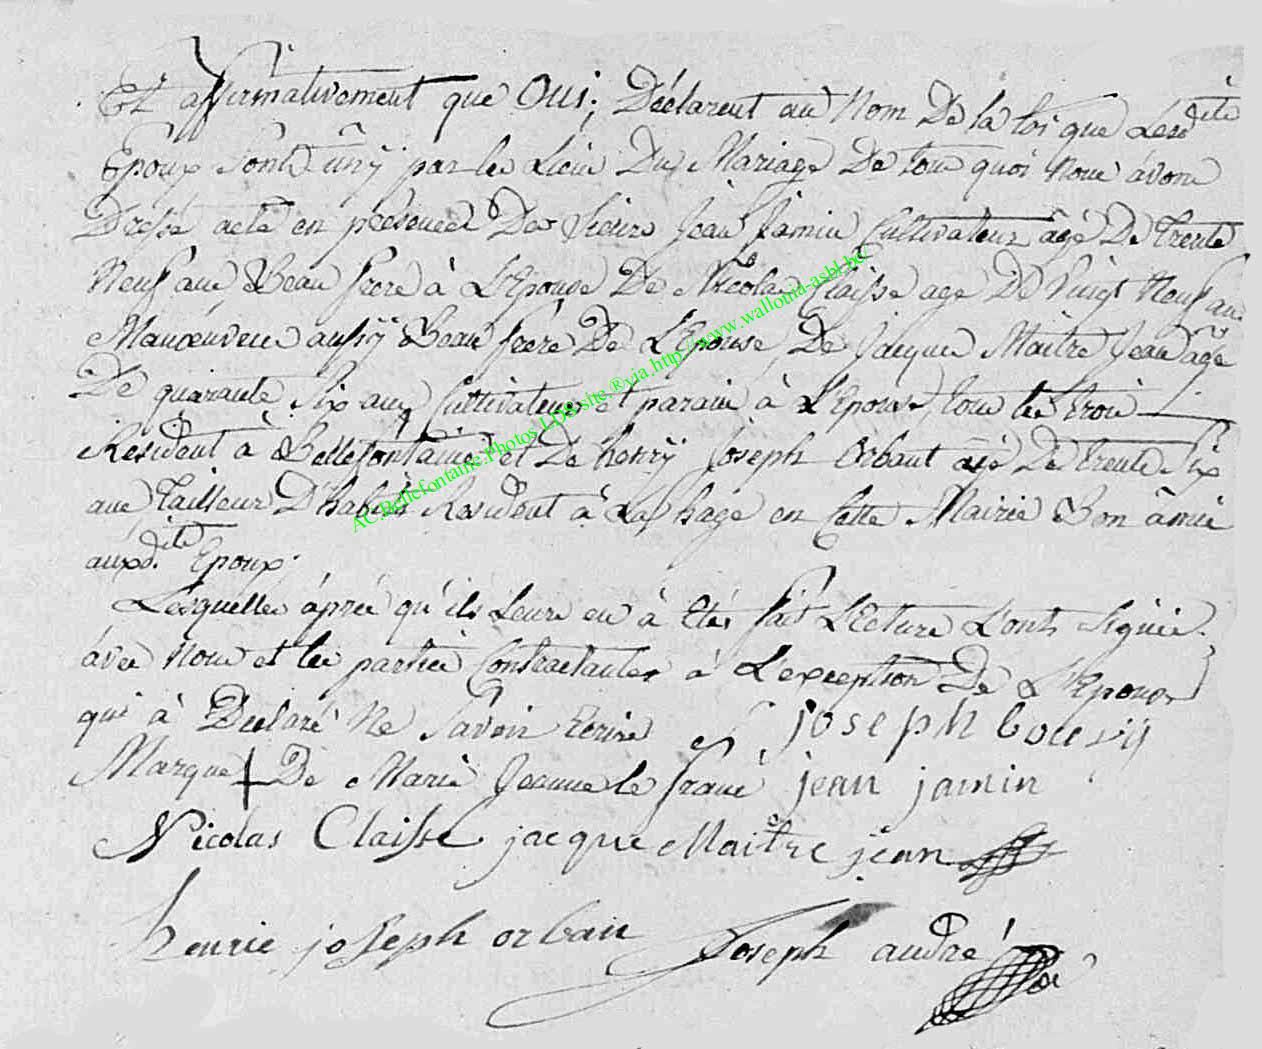 Et affirmativement que Oui; Déclarent au Nom De la loi que Lesdits
Epoux Sont ûny par le Lien Du Mariage De tou quoi Nous âvons
Dressé acte en présences Des Sieurs Jean Jamin Cultivateur âgé De trente
Neuf ans Beau frere à L'Epouse De Nicolas Claisse age De Vingt Neuf ans
Manœuvre aussÿ Beau frère De L'Epouse, De Jacque Maitre Jean âgé
De quarante Six ans Cultivateur et parain à L'Epouse, tous les trois
Résident à Bellefontaine et De henrÿ Joseph Orbant agé De trente Six
ans Tailleur D'habits Resident à Lahage en Cette Mairie Bon âmie
auxdits Epoux.
Lesquelles âprés qu'ils Leurs en à Etés fait L'Ecture L'onts Signés
âvec Nous et les parties Contractantes à L'exception De L'Epouse
qui à Déclaré Ne Savoir Ecrire joseph bouvÿ
Marque + De Marie Jeanne le franc jean jamin
Nicolas Claisse jacque Maître jean
henrie joseph orban Joseph andré
AC.Bellefontaine.Photos LDB.site.®via.http://www.wallonia-asbl.be/